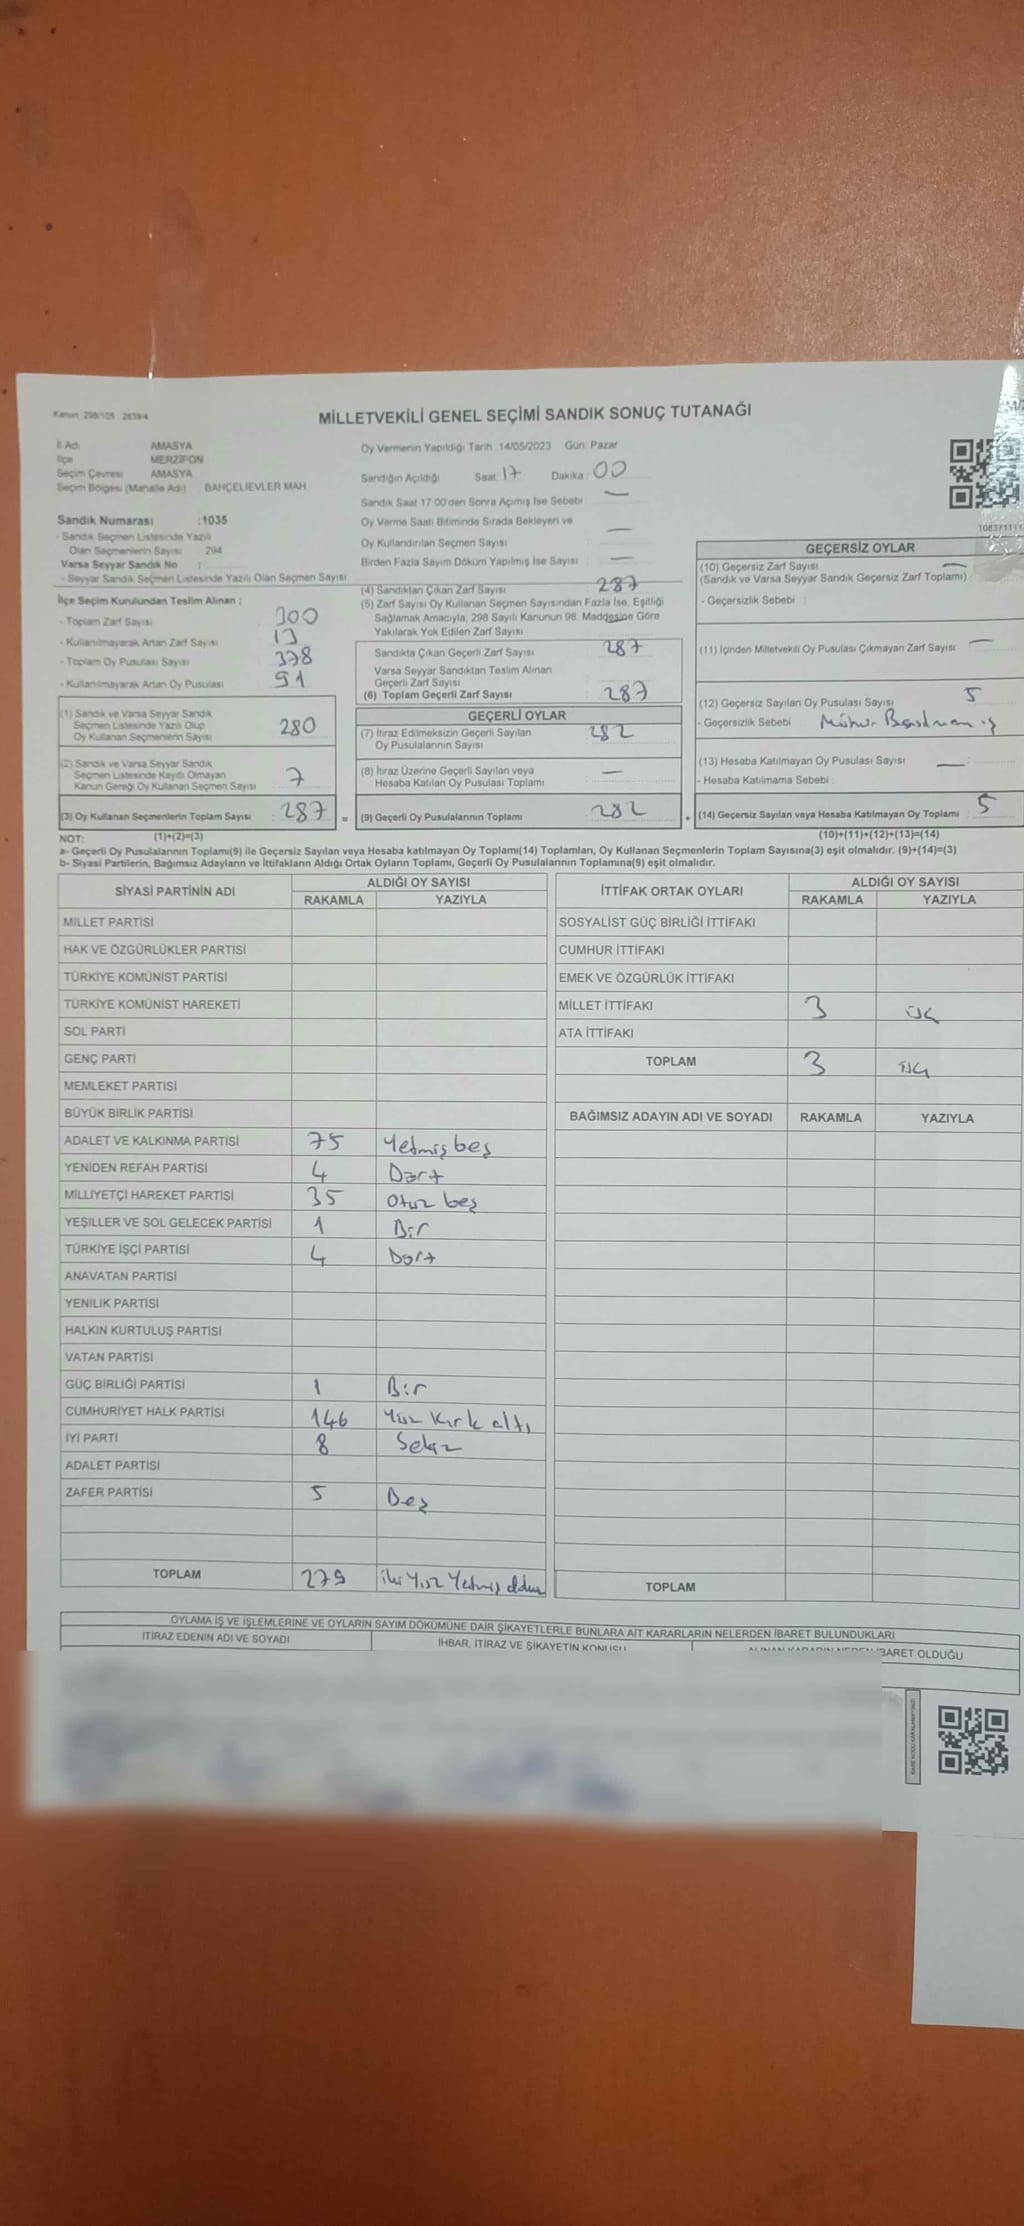 Kanun: 298/105 2839/4
MİLLETVEKİLİ GENEL SEÇİMİ SANDIK SONUÇ TUTANAĞI
İl Adı AMASYA
İlçe MERZİFON
Seçim Çevresi AMASYA
Seçim Bölgesi (Mahalle Adı) BAHÇELİEVLER MAH.
Sandık Numarası :1035
- Sandık Seçmen Listesinde Yazılı
Olan Seçmenlerin Sayısı : 294
Varsa Seyyar Sandık No :
- Seyyar Sandık Seçmen Listesinde Yazılı Olan Seçmen Sayısı
Oy Vermenin Yapıldığı Tarih :14/05/2023 Gün: Pazar
Sandığın Açıldığı Saat: 17 Dakika: 00
Sandık Saat 17:00'den Sonra Açımış İse Sebebi —
Oy Verme Saati Bitiminde Sırada Bekleyen ve
Oy Kullandırılan Seçmen Sayısı —
Birden Fazla Sayım Döküm Yapılmış İse Sayısı : —
108371111
İlçe Seçim Kurulundan Teslim Alınan ;
- Toplam Zarf Sayısı 300
- Kullanılmayarak Artan Zarf Sayısı 13
- Toplam Oy Pusulası Sayısı 378
- Kullanılmayarak Artan Oy Pusulası 91
(1) Sandık ve Varsa Seyyar Sandık
Seçmen Listesinde Yazılı Olup
Oy Kullanan Seçmenlerin Sayısı 280
(2) Sandık ve Varsa Seyyar Sandık
Seçmen Listesinde Kayıtlı Olmayan
Kanun Gereği Oy Kullanan Seçmen Sayısı 7
(3) Oy Kullanan Seçmenlerin Toplam Sayısı : 287 =
(4) Sandıktan Çıkan Zarf Sayısı 287
(5) Zarf Sayısı Oy Kullanan Seçmen Sayısından Fazla İse, Eşitliği
Sağlamak Amacıyla, 298 Sayılı Kanunun 98. Maddesine Göre
Yakılarak Yok Edilen Zarf Sayısı —
Sandıkta Çıkan Geçerli Zarf Sayısı 287
Varsa Seyyar Sandıktan Teslim Alınan
Geçerli Zarf Sayısı
(6) Toplam Geçerli Zarf Sayısı 287
GEÇERLİ OYLAR
(7) İtiraz Edilmeksizin Geçerli Sayılan
Oy Pusulalarının Sayısı 282
(8) İtiraz Üzerine Geçerli Sayılan veya
Hesaba Katılan Oy Pusulası Toplamı —
(9) Geçerli Oy Pusulalarının Toplamı 282 +
GEÇERSİZ OYLAR
(10) Geçersiz Zarf Sayısı —
(Sandık ve Varsa Seyyar Sandık Geçersiz Zarf Toplamı)
- Geçersizlik Sebebi :
(11) İçinden Milletvekili Oy Pusulası Çıkmayan Zarf Sayısı —
(12) Geçersiz Sayılan Oy Pusulası Sayısı 5
- Geçersizlik Sebebi
(13) Hesaba Katılmayan Oy Pusulası Sayısı — :
- Hesaba Katılmama Sebebi :
(14) Geçersiz Sayılan veya Hesaba Katılmayan Oy Toplamı : 5
NOT: (1)+(2)=(3) (10)+(11)+(12)+(13)=(14)
a- Geçerli Oy Pusulalarının Toplamı(9) ile Geçersiz Sayılan veya Hesaba katılmayan Oy Toplamı(14) Toplamları, Oy Kullanan Seçmenlerin Toplam Sayısına(3) eşit olmalıdır. (9)+(14)=(3)
b- Siyasi Partilerin, Bağımsız Adayların ve İttifakların Aldığı Ortak Oyların Toplamı, Geçerli Oy Pusulalarının Toplamına(9) eşit olmalıdır.
SİYASİ PARTİNİN ADI ALDIĞI OY SAYISI
RAKAMLA YAZIYLA
MİLLET PARTİSİ
HAK VE ÖZGÜRLÜKLER PARTİSİ
TÜRKİYE KOMÜNİST PARTİSİ
TÜRKİYE KOMÜNİST HAREKETİ
SOL PARTİ
GENÇ PARTİ
MEMLEKET PARTİSİ
BÜYÜK BİRLİK PARTİSİ
ADALET VE KALKINMA PARTİSİ 75 Yetmiş beş
YENİDEN REFAH PARTİSİ 4 Dört
MİLLİYETÇİ HAREKET PARTİSİ 35 Otuz beş
YEŞİLLER VE SOL GELECEK PARTİSİ 1 Bir
TÜRKİYE İŞÇİ PARTİSİ 4 Dört
ANAVATAN PARTİSİ
YENİLİK PARTİSİ
HALKIN KURTULUŞ PARTİSİ
VATAN PARTİSİ
GÜÇ BİRLİĞİ PARTİSİ 1 Bir
CUMHURİYET HALK PARTİSİ 146 Yüz kırk altı
İYİ PARTİ 8 Sekiz
ADALET PARTİSİ
ZAFER PARTİSİ 5 Beş
TOPLAM 279 iki Yüz Yetmiş dokuz
İTTİFAK ORTAK OYLARI ALDIĞI OY SAYISI
RAKAMLA YAZIYLA
SOSYALİST GÜÇ BİRLİĞİ İTTİFAKI
CUMHUR İTTİFAKI
EMEK VE ÖZGÜRLÜK İTTİFAKI
MİLLET İTTİFAKI 3 üç
ATA İTTİFAKI
TOPLAM 3 üç
BAĞIMSIZ ADAYIN ADI VE SOYADI RAKAMLA YAZIYLA
TOPLAM
OYLAMA İŞ VE İŞLEMLERİNE VE OYLARIN SAYIM DÖKÜMÜNE DAİR ŞİKAYETLERLE BUNLARA AİT KARARLARIN NELERDEN İBARET BULUNDUKLARI
İTİRAZ EDENİN ADI VE SOYADI İHBAR, İTİRAZ VE ŞİKAYETİN KONUSU ALINAN KARARIN NEDEN İBARET OLDUĞU